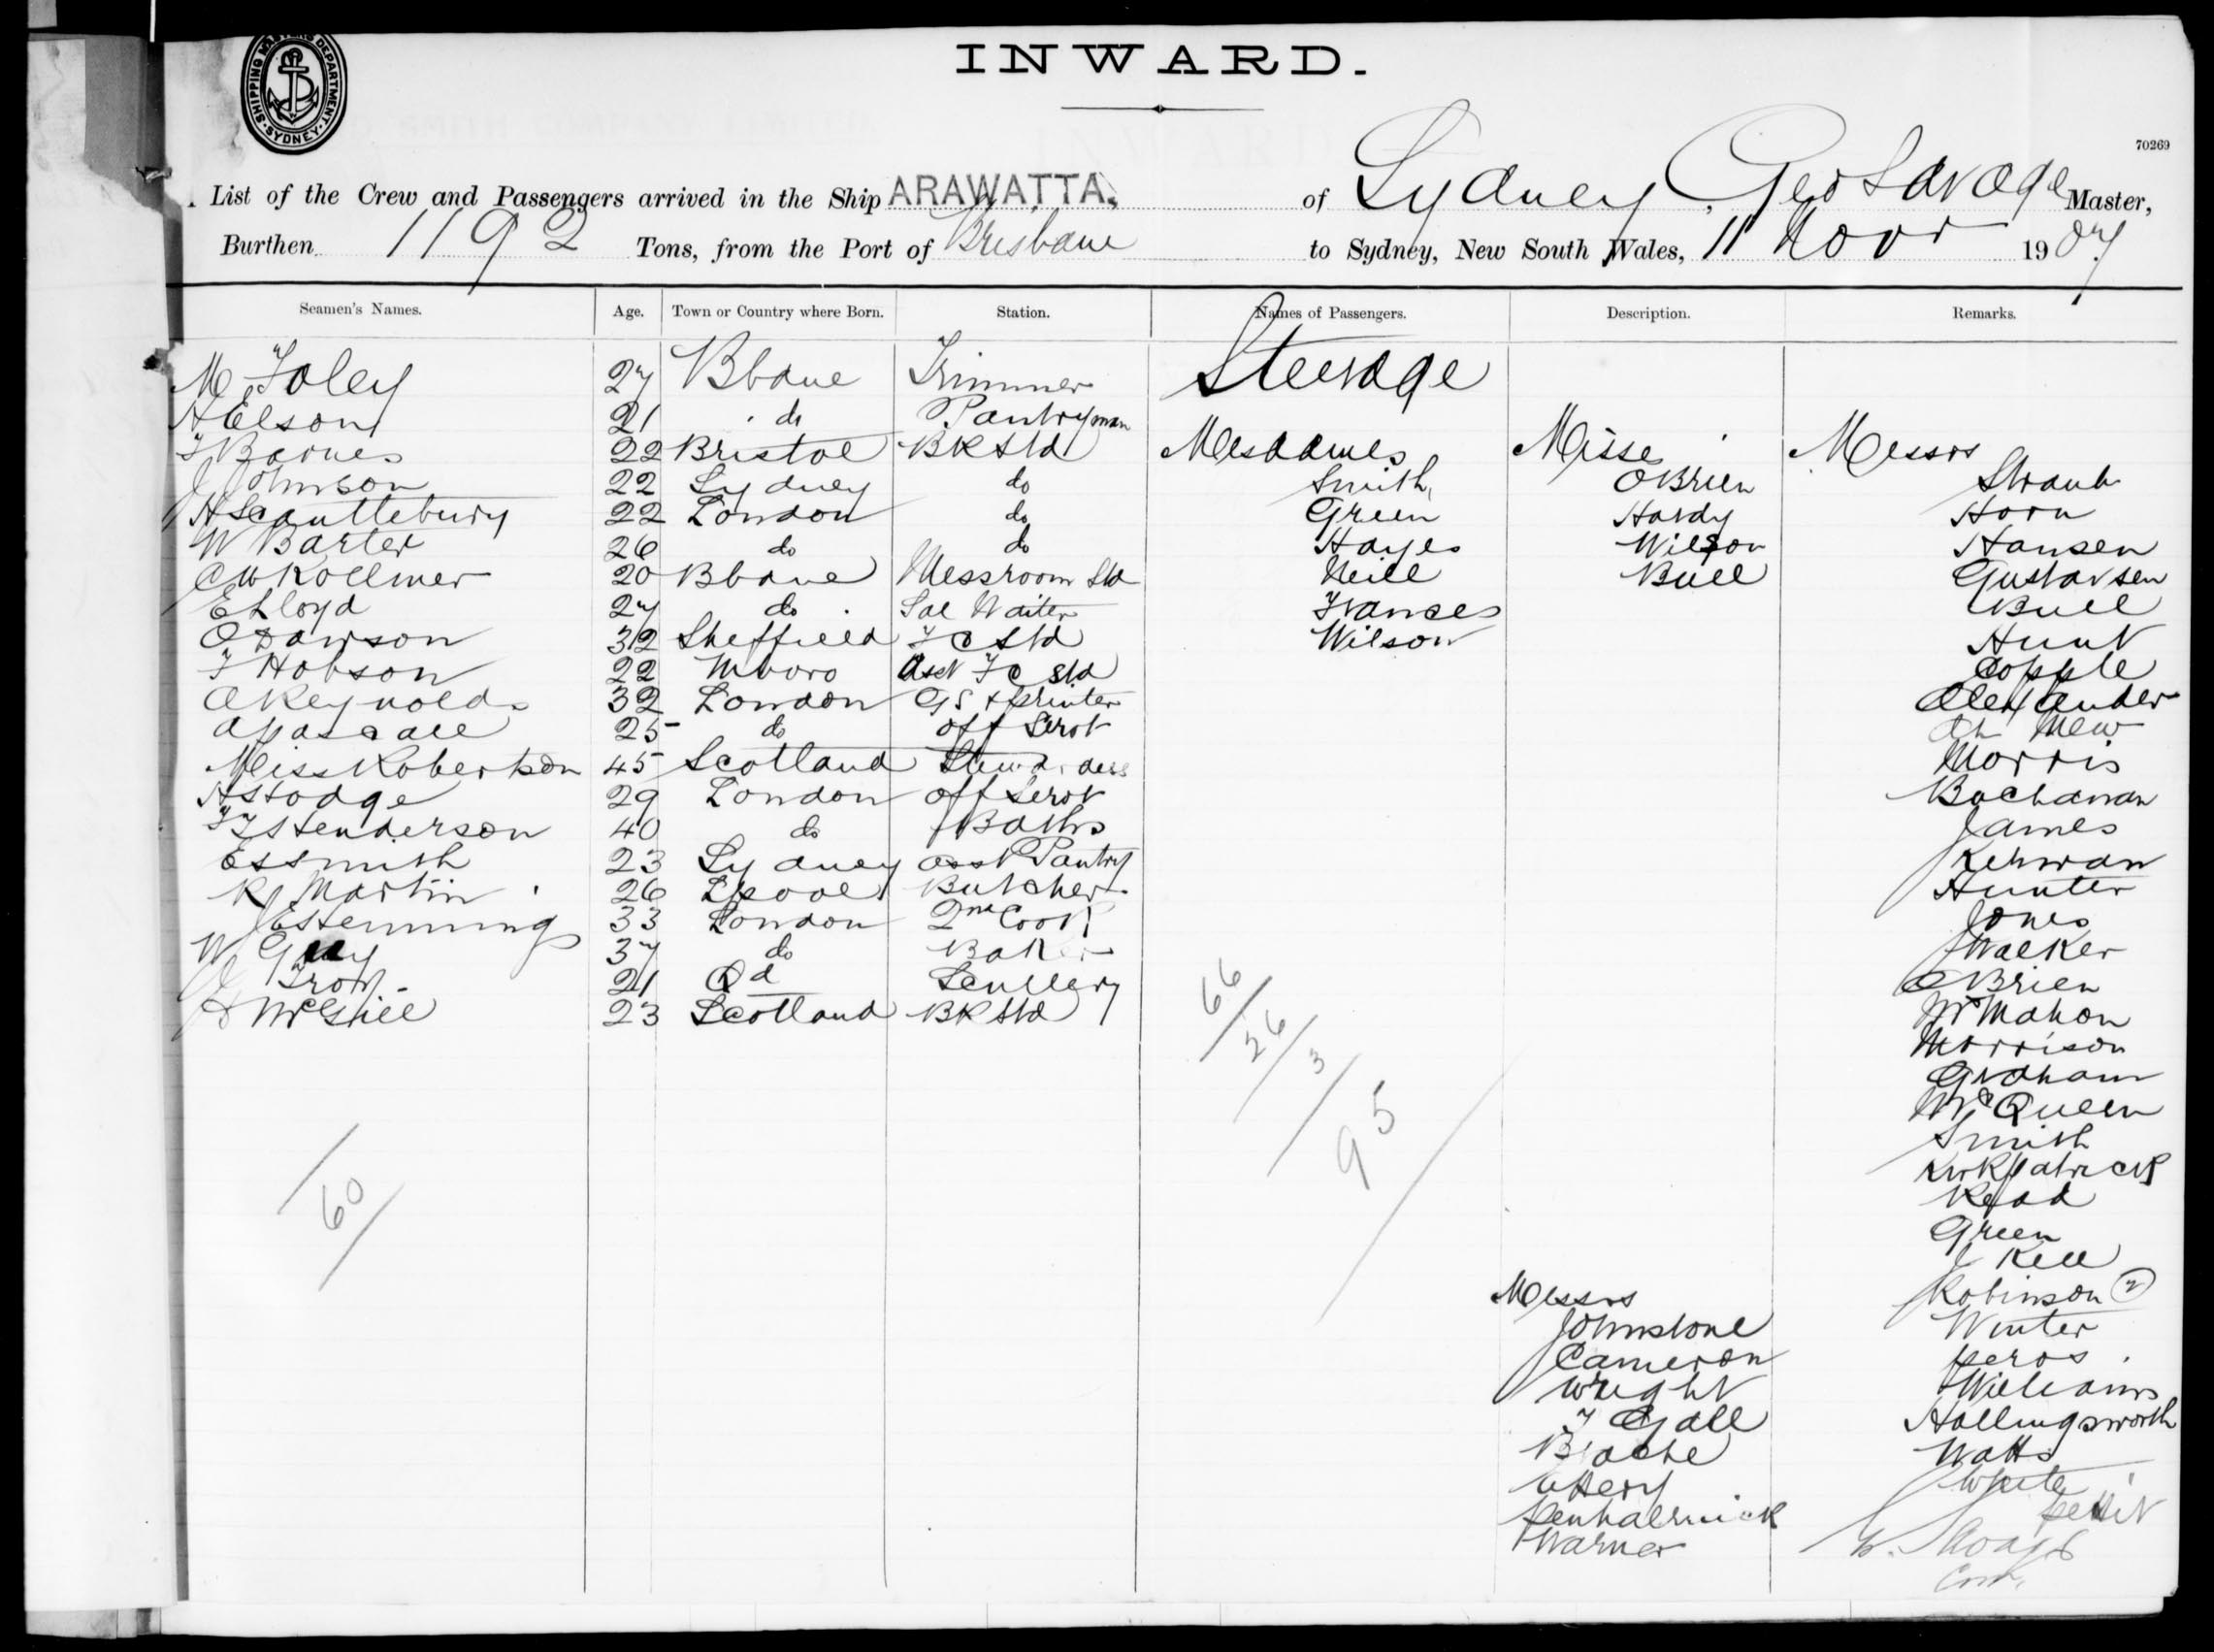 SHIPPING MASTERS DEPARTMENT. SYDNEY
INWARD.
70269
List of the Crew and Passengers arrived in the Ship ARAWATTA, of Sydney, Geo Savage Master,
Burthen 1192 Tons, from the Port of Brisbane to Sydney, New South Wales, 11 Novr 1907
Seamen's Names. Age. Town or Country where Born. Station. Names of Passengers. Description. Remarks.
M Foley 27 Bbane Trimmer Steerage
H Elson 21 do Pantryman
F Barnes 22 Bristol BK Std Mesdames Misses Messrs
J Johnson 22 Sydney do Smith OBrien Straub
H Scantlebury 22 London do Green Hardy Horn
W Barter 26 do do Hayes Wilson Hansen
C W Kollmer 20 Bbane Messroom Std Neill Bull Gustavsen
E Lloyd 27 do Sal Waiter Frances Bull
O Dawson 32 Sheffield F C Std Wilson Hunt
F Hobson 22 Mboro Asst F C Std Copple
A Reynolds 32 London GS & Printer Alexander
A Pascall 25 do Off Servt Ah Mew
Miss Robertson 45 Scotland Stewardess Morris
H Stodge 29 London Off Servt Buchanan
F J Henderson 40 do Baths James
E S Smith 23 Sydney Asst Pantry Kehwan
R Martin 26 Lpool Butcher Hunter
J E Hemmings 33 London 2nd Cook Jones
W Guy 37 do Baker Walker
J Trow 21 Qd Scullery OBrien
D McGhee 23 Scotland BK Std McMahon
66
26
3
95
Morrison
Graham
McQueen
Smith
60
Kirkpatrick
Read
Green
J Kell
Messrs Robinson (2)
Johnstone Winter
Cameron Peros
Wright Williams
F Gall Hollingsworth
Brache Watts
Uttery White
Penhalerwick Pettit
Warner G. Savage
Com.